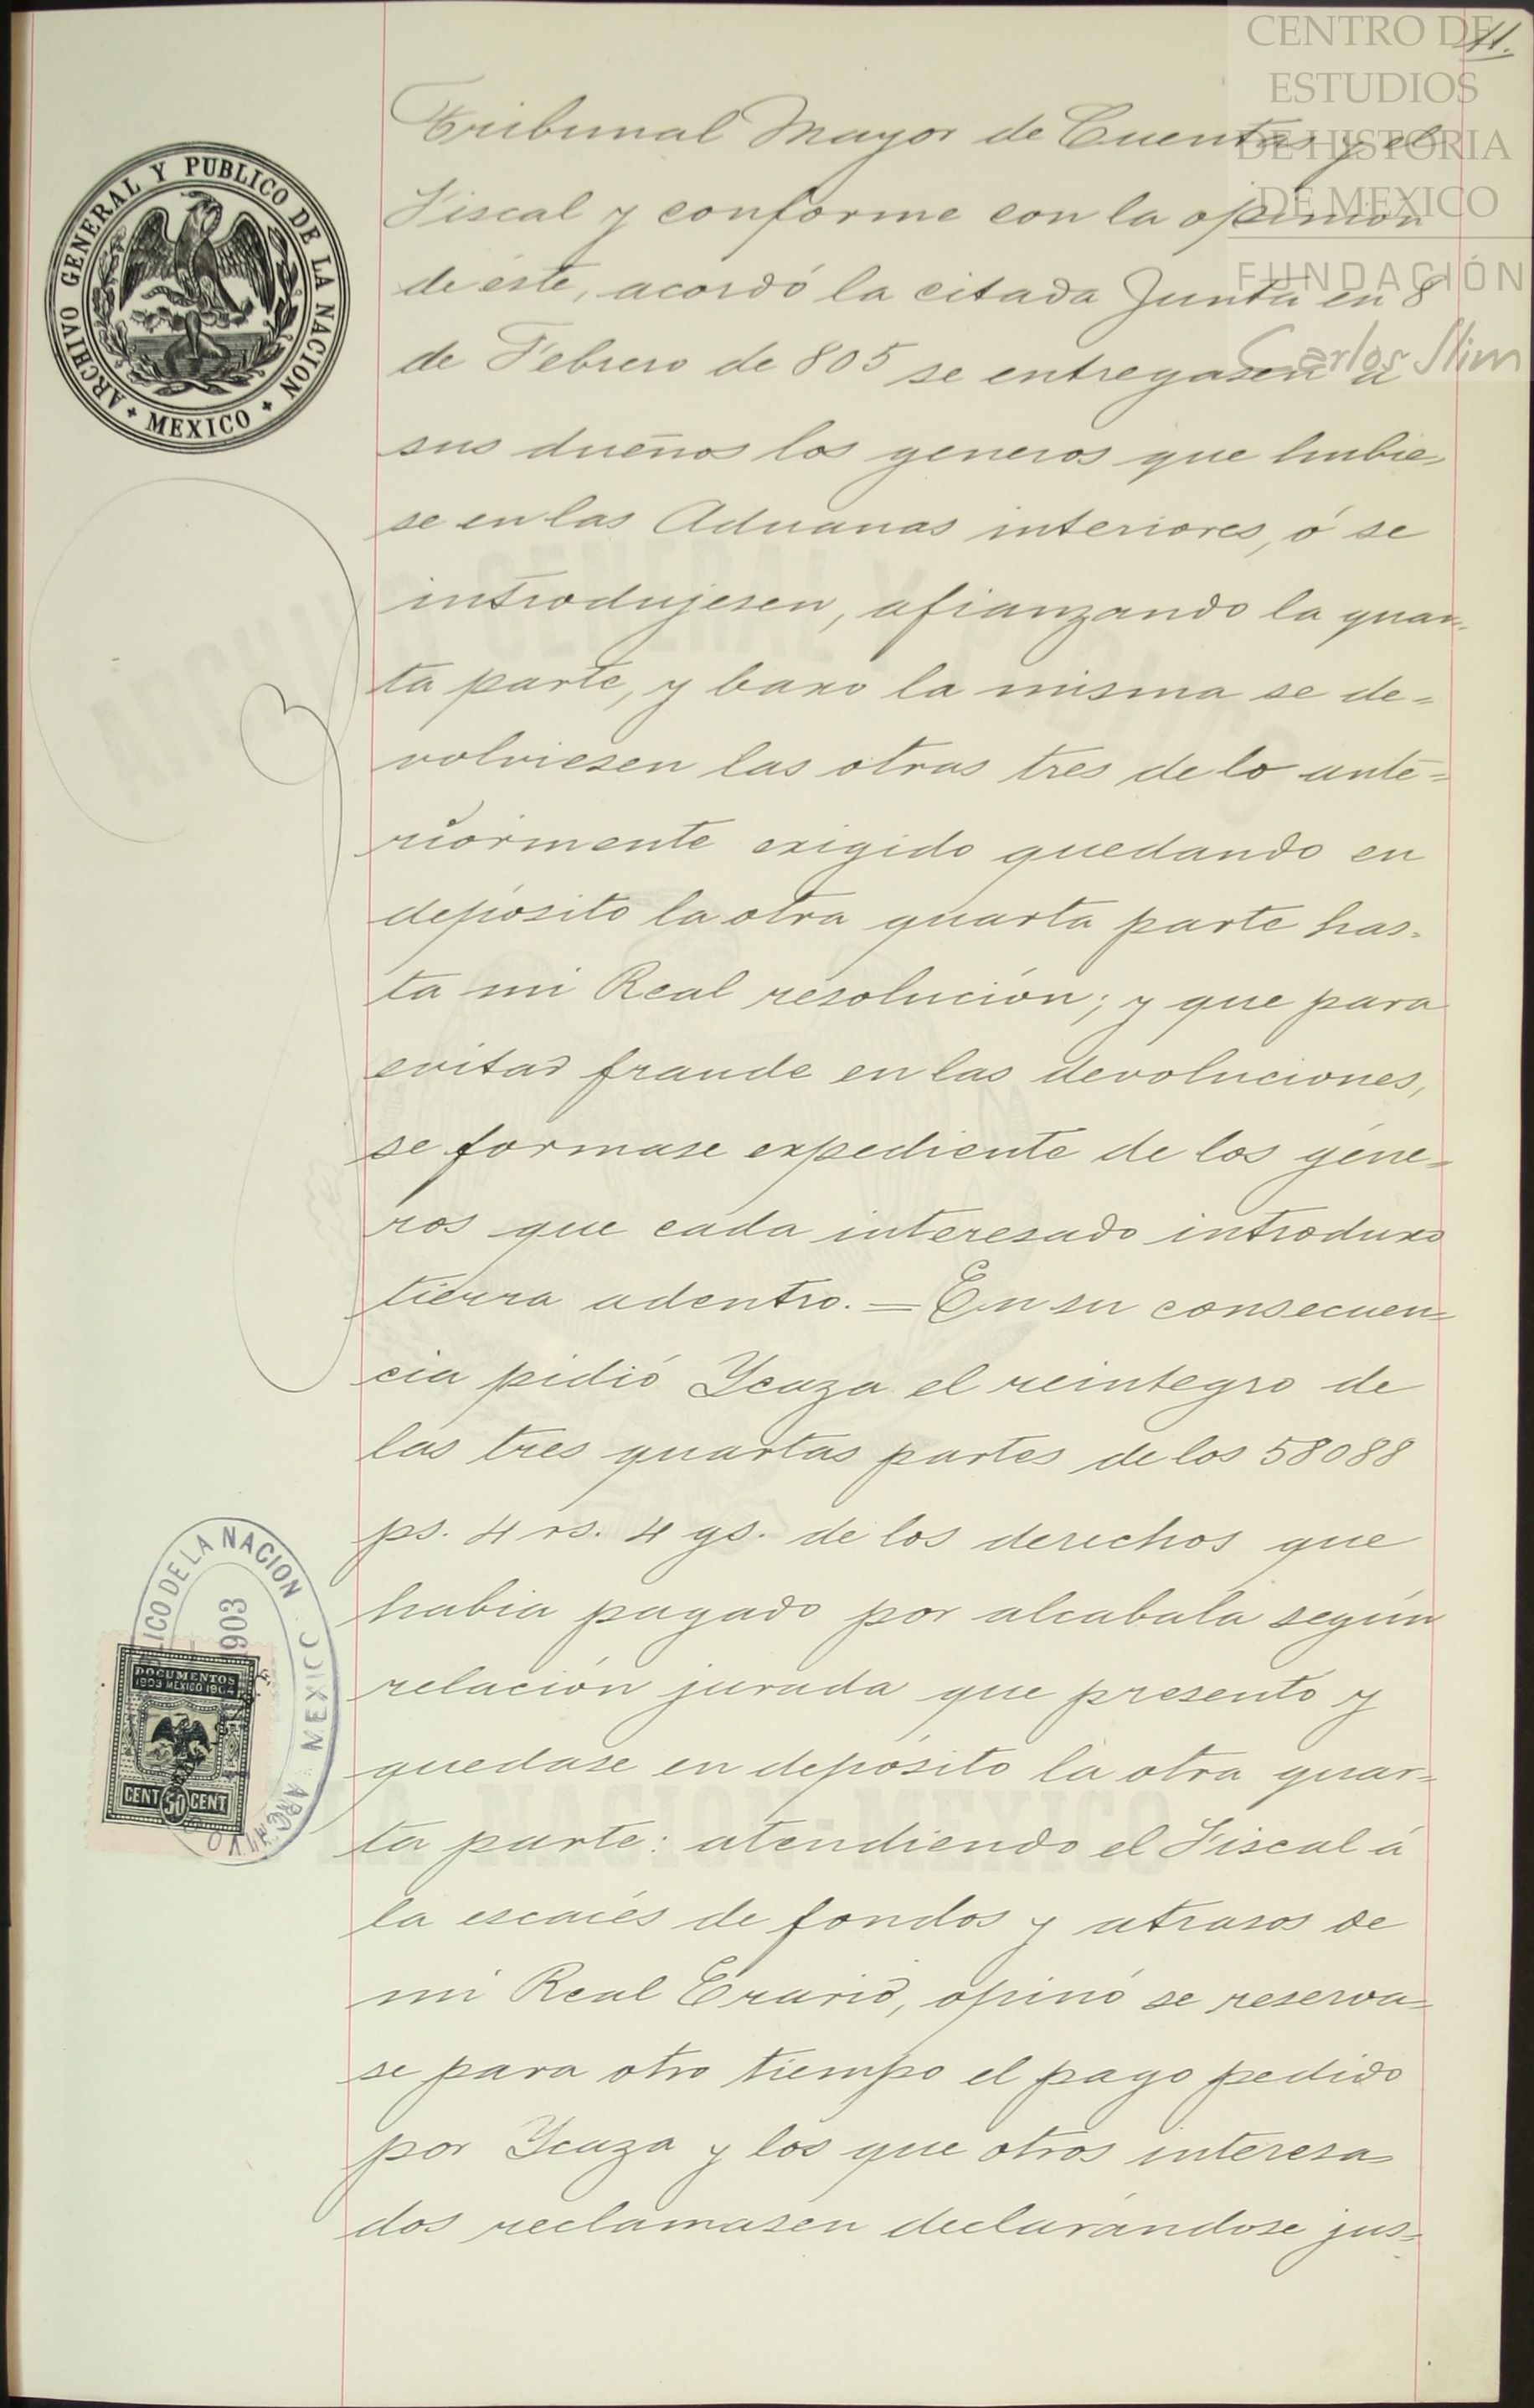 CENTRO DE
ESTUDIOS
DE HISTORIA
DE MEXICO
FUNDACIÓN
Carlos Slim
11.
ARCHIVO GENERAL Y PUBLICO DE LA NACION
MEXICO
Tribunal Mayor de Cuentas y el
Fiscal y conforme con la opinion
de éste, acordó la citada Junta en 8
de Febrero de 805 se entregasen a
sus dueños los generos que hubie-
se en las Aduanas interiores, ó se
introdujesen, afianzando la quar-
ta parte, y baxo la misma se de=
volviesen las otras tres de lo ante=
riormente exigido quedando en
depósito la otra quarta parte has-
ta mi Real resolución; y que para
evitar fraude en las devoluciones,
se formase expediente de los géne=
ros que cada interesado introduxo
tierra adentro. = En su consecuen=
cia pidió Ycaza el reintegro de
las tres quartas partes de los 58088
ps. 4 rs. 4 gs. de los derechos que
habia pagado por alcabala según
relación jurada que presentó y
quedase en depósito la otra quar=
ta parte: atendiendo el Fiscal á
la escacés de fondos y atrasos de
mi Real Erario, opinó se reserva=
se para otro tiempo el pago pedido
por Ycaza y los que otros interesa=
dos reclamasen declarándose jus=
LICO DE LA NACION
MEXICO
ARCHIVO
1903
DOCUMENTOS
1903 MEXICO 1904
CENT 50 CENT
ARCHIVO GENERAL Y PUBLICO
LA NACION MEXICO